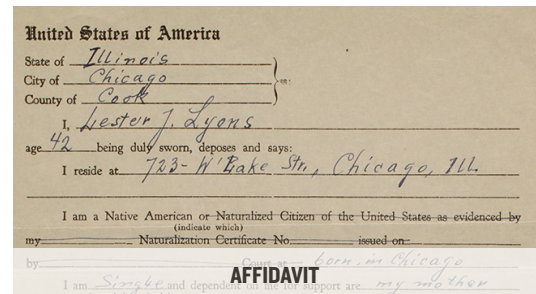 United States of America
State of Illinois
City of Chicago
County of Cook
ss:
I, Lester J. Lyons
age 42 being duly sworn, deposes and says:
I reside at 723- W Lake Str., Chicago, Ill.
I am a Native American or Naturalized Citizen of the United States as evidenced by
(indicate which)
my Naturalization Certificate No. issued on
by Court at born in Chicago
AFFIDAVIT
I am Single and dependent on me for support are my mother